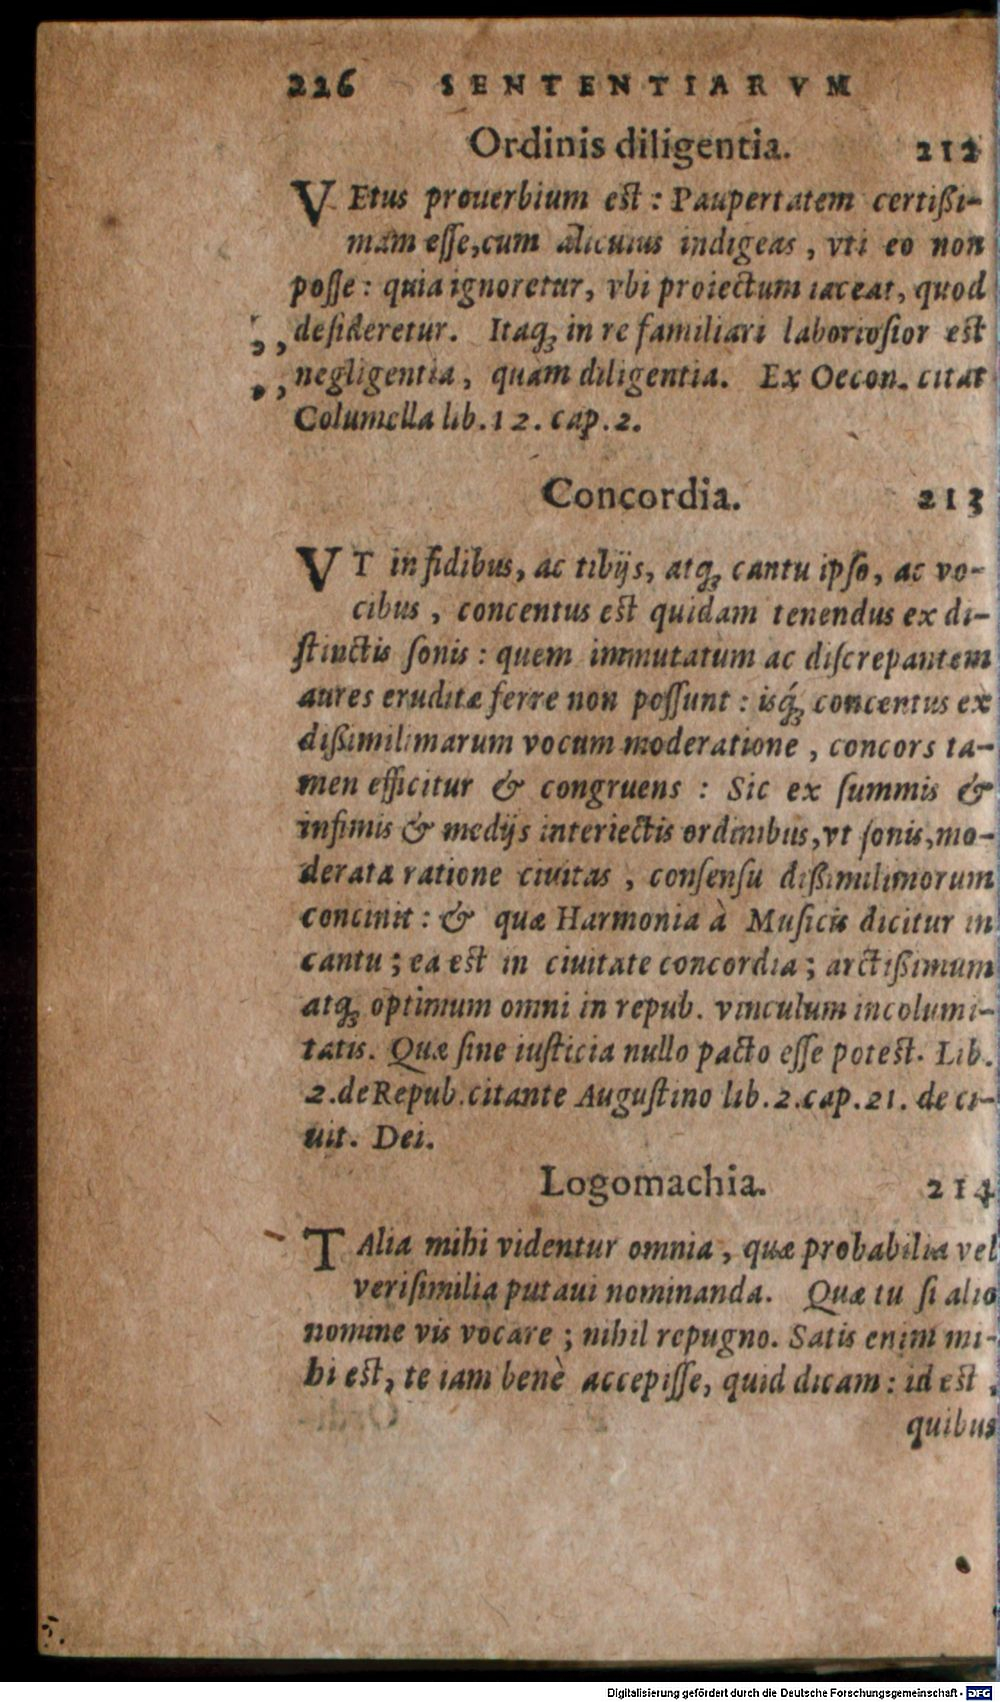 226 SENTENTIARVM
Ordinis diligentia. 212
VEtus prouerbium est : Paupertatem certißi-
mam esse, cum alicuius indigeas, vti eo non
posse : quia ignoretur, vbi proiectum iaceat, quod
,, desideretur. Itaq; in re familiari laboriosior est
,, negligentia, quam diligentia. Ex Oecon. citat
Columella lib. 12. cap. 2.
Concordia. 213
VT in fidibus, ac tibijs, atq; cantu ipso, ac vo-
cibus, concentus est quidam tenendus ex di-
stinctis sonis : quem immutatum ac discrepantem
aures eruditæ ferre non possunt : isq́; concentus ex
dißimilimarum vocum moderatione, concors ta-
men efficitur & congruens : Sic ex summis &
infimis & medijs interiectis ordinibus, vt sonis, mo-
derata ratione ciuitas, consensu dißimilimorum
concinit : & quæ Harmonia à Musicis dicitur in
cantu ; ea est in ciuitate concordia ; arctißimum
atq; optimum omni in repub. vinculum incolumi-
tatis. Quæ sine iusticia nullo pacto esse potest. Lib.
2. de Repub. citante Augustino lib. 2. cap. 21. de ci-
uit. Dei.
Logomachia. 214
TAlia mihi videntur omnia, quæ probabilia vel
verisimilia putaui nominanda. Quæ tu si alio
nomine vis vocare ; nihil repugno. Satis enim mi-
hi est, te iam benè accepisse, quid dicam : id est,
quibus
Digitalisierung gefördert durch die Deutsche Forschungsgemeinschaft - DFG